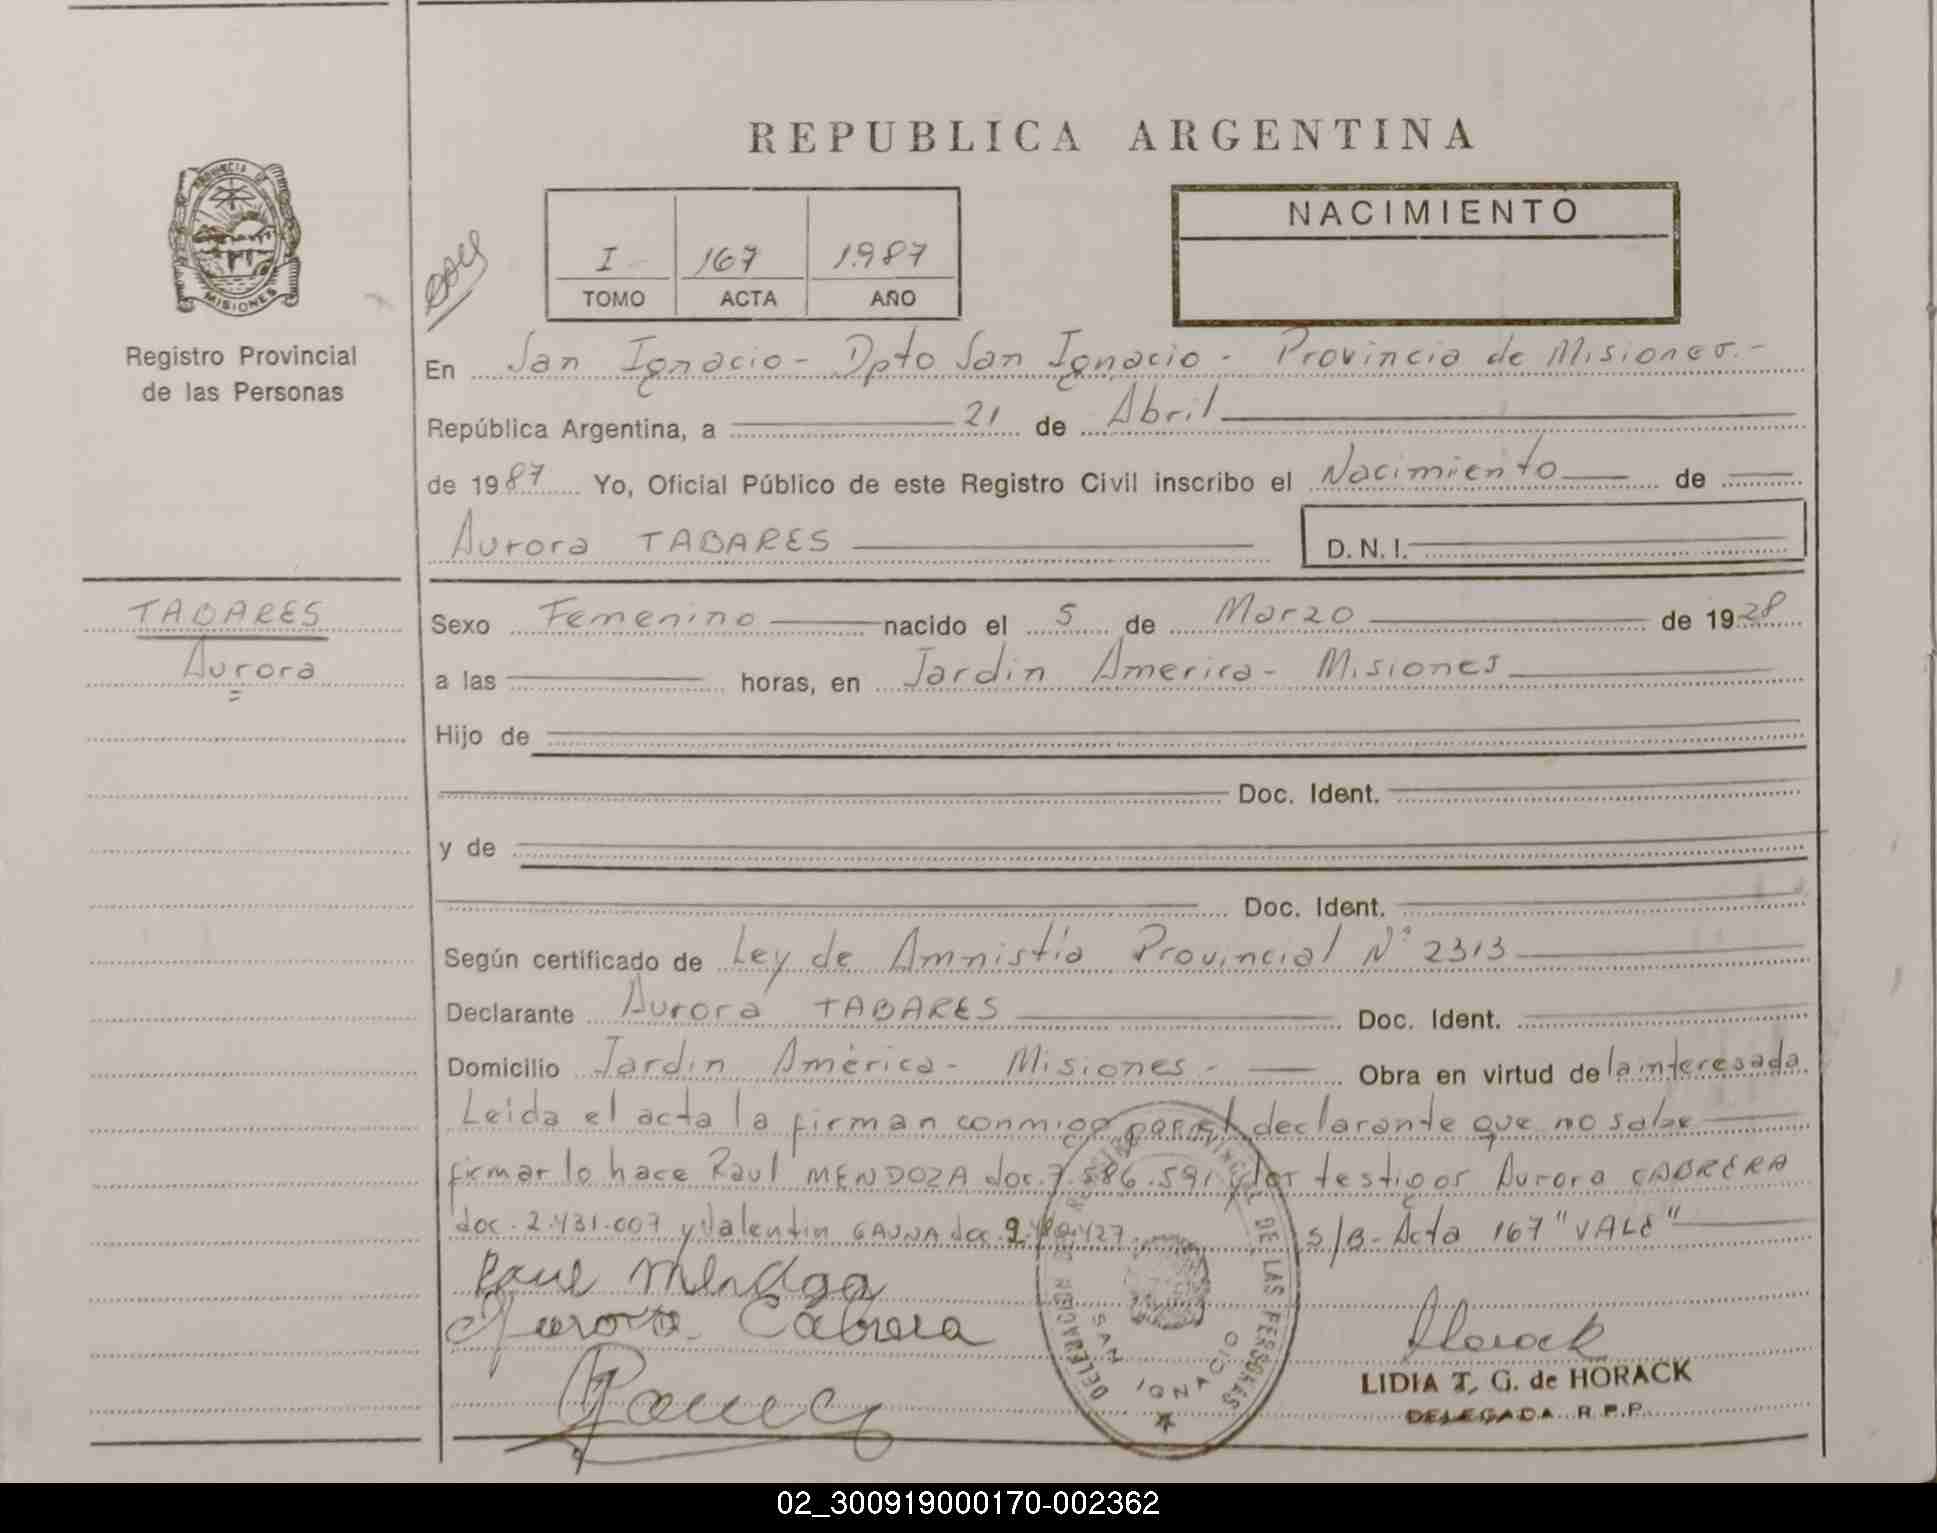 REPUBLICA ARGENTINA
PROVINCIA DE
MISIONES
Registro Provincial
de las Personas
I 167 1987
TOMO ACTA AÑO
NACIMIENTO
En San Ignacio - Dpto San Ignacio - Provincia de Misiones.-
República Argentina, a 21 de Abril
de 1987 Yo, Oficial Público de este Registro Civil inscribo el Nacimiento de
Aurora TABARES D.N.I.
TABARES
Aurora
Sexo Femenino nacido el 5 de Marzo de 1928
a las horas, en Jardin America - Misiones
Hijo de
Doc. Ident.
y de
Doc. Ident.
Según certificado de Ley de Amnistía Provincial N° 2313
Declarante Aurora TABARES Doc. Ident.
Domicilio Jardin América - Misiones - Obra en virtud de la interesada
Leida el acta la firman conmigo por el declarante que no sabe
firmar lo hace Raul MENDOZA doc. 7.586.591 y los testigos Aurora CABRERA
doc. 2.431.007 y Valentin GAUNA doc. S/B- Acta 167 "VALE"
Raul Mendoza
Aurora Cabrera
Horack
LIDIA T. G. de HORACK
DELEGADA R.P.P.
DE LAS PERSONAS
SAN IGNACIO
02_300919000170-002362